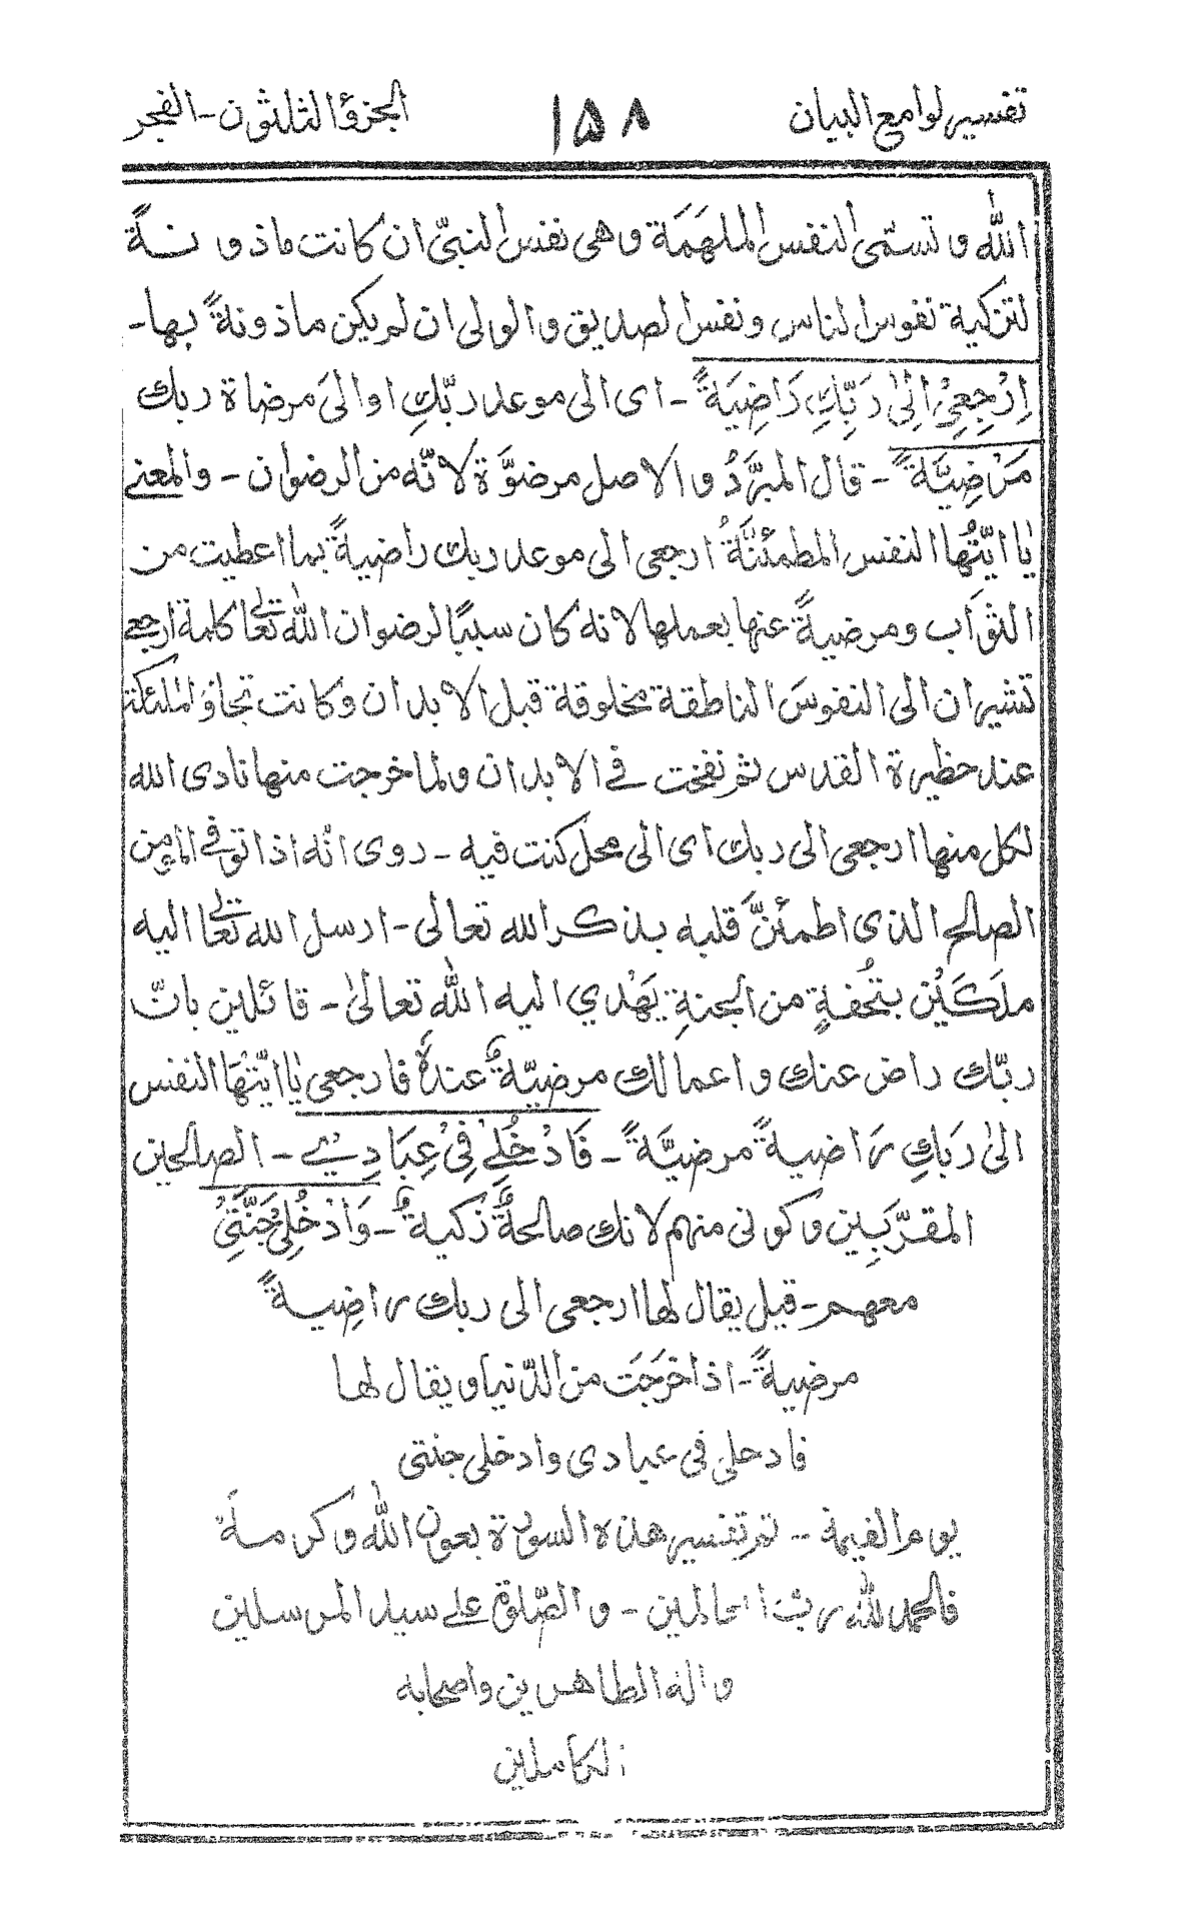 تفسير لوامع البيان ١٥٨ الجزؤ الثلثون - الفجر
الله و تسمى النفس الملهَمَة وهى نفس النبىّ ان كانت ماذونةً
لتزكية نفوس الناس ونفس الصديق والولى ان لم يكن ماذونةً بها-
اِرْجِعِىْ اِلىٰ رَبِّكِ رَاضِيَةً - اى الى موعد ربّكِ او الىَ مرضاة ربك
مَرْضِيَّةً - قال المبرَّدُ و الاصل مرضوَّة لانّه من الرضوان - والمعنے
يٰا ايّتُها النفس المطمئنَّةُ ارجعى الى موعد ربك راضيةً بما اعطيت من
الثوَاب ومرضيةً عنها بعملها لانه كان سببًا لرضوان الله تعالى كلمة ارجعے
تشير ان الى النفوسَ الناطقة مخلوقة قبل الابدان وكانت تجاوُ الملئكة
عند حظيرة القدس ثم نفخت فے الابدان ولما خرجت منها نادى الله
لكل منها ارجعى الى ربك اى الى محل كنت فيه - روى انّه اذا توفے المؤمن
الصالح الذى اطمئنَّ قلبه بذكر الله تعالى - ارسل الله تعالى اليه
ملَكَيْن بتُحفةٍ من الجنةِ يَهْدي اليه اللّٰه تعالىٰ - قائلين بانّ
ربّك راض عنك واعمالك مرضيّةٌ عندهٗ فارجعى يٰا ايّتُهَا النفس
الىٰ رَبكِ راضيةً مرضيَّةً - فَادْخُلِےْ فِىْ عِبَادِيْ - الصالحين
المقرَّبِين وكونى منهم لانك صالحةٌ زكيةٌ - وَادْخُلِىْ جَنَّتِىْ
معهم - قيل يقال لها ارجعى الى ربك راضِيةً
مرضيةً - اذا خرَجَت من الدّنيا ويقال لها
فادخلى فى عبادى وادخلى جنتى
يوم القيمة - تم تفسير هذه السورة بعون الله وكرمه
فالحمد لله ربّ العالمين - و الصّلوة علے سيد المرسلين
و اله الطاهرين واصحابه
الكاملين